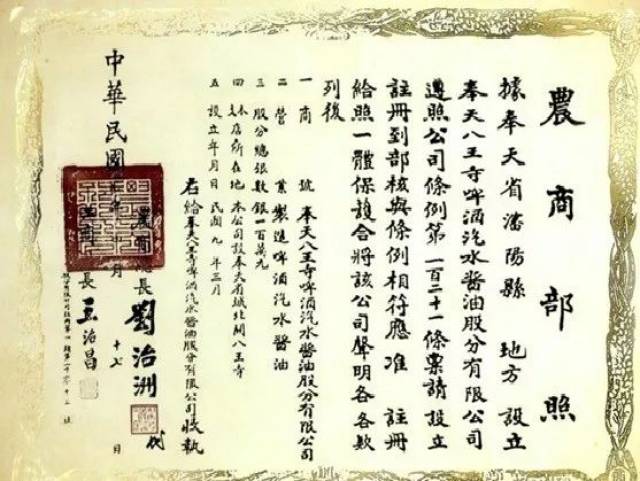 農商部照
據奉天省瀋陽縣 地方 設立
奉天八王寺啤酒汽水醬油股分有限公司
遵照公司條例第一百二十一條稟請設立
註冊到部核與條例相符應准 註冊
給照一體保護合將該公司聲明各各欵
列後
一 商 號 奉天八王寺啤酒汽水醬油股分有限公司
二 營 業 製造啤酒汽水醬油
三 股分總銀數 銀一百萬元
四 本店所在地 本公司設奉天省城北關八王寺
五 設立年月日 民國九年三月
右給奉天八王寺啤酒汽水醬油股分有限公司收執
中華民國 年 月 十七 日
農商總長 劉治洲 代
長 王治昌